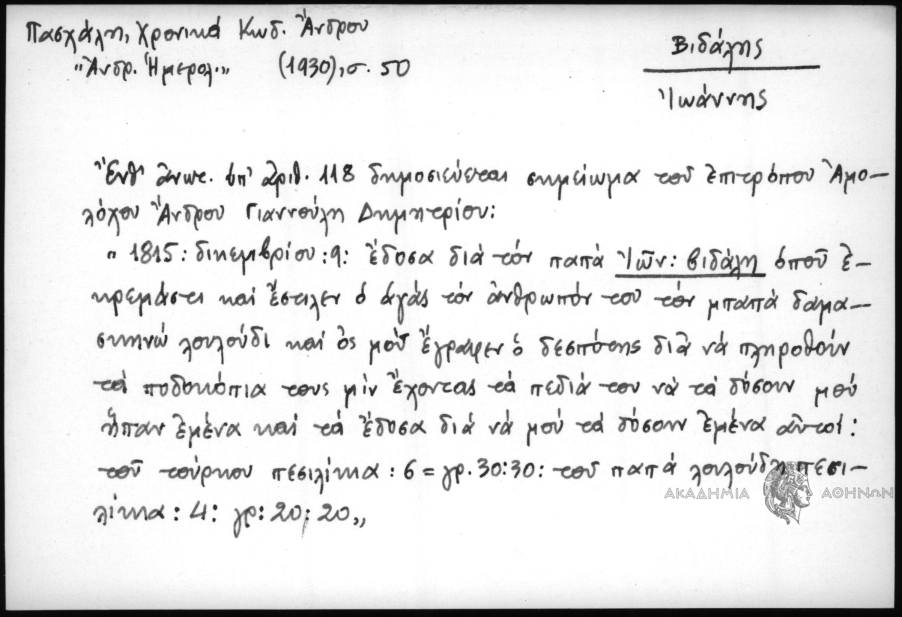 Πασχάλη, Χρονικά Κωδ. Ἄνδρου
"Ἀνδρ. Ἡμερολ." (1930), σ. 50
Βιδάλης
Ἰωάννης
Ἔνθ' ἀνωτ. ὑπ' ἀριθ. 118 δημοσιεύεται σημείωμα τοῦ ἐπιτρόπου Ἀμο-
λόχου Ἄνδρου Γιαννούλη Δημητρίου:
" 1815: δικεμβρίου: 9: ἔδοσα διὰ τὸν παπᾶ Ἰων̃: βιδάλη ὁποῦ ἐ-
κρεμάστι καὶ ἔστιλεν ὁ ἀγάς τὸν ἄνθρωπόν του τὸν μπαπᾶ δαμα-
σκηνὼ λουλούδι καὶ ὁς μοῦ ἔγραψεν ὁ δεσπότης διὰ νὰ πληροθοῦν
τὰ ποδοκόπια τους μὶν ἔχοντας τὰ πεδιά του νὰ τὰ δόσουν μοῦ
ἥπαν ἐμένα καὶ τὰ ἔδοσα διὰ νὰ μοῦ τὰ δόσουν ἐμένα αὐτοί:
τοῦ τούρκου πεσιλίκια: 6 = γρ. 30:30: τοῦ παπᾶ λουλούδη πεσι-
λίκια: 4: γρ: 20: 20„
ΑΚΑΔΗΜΙΑ ΑΘΗΝΩΝ